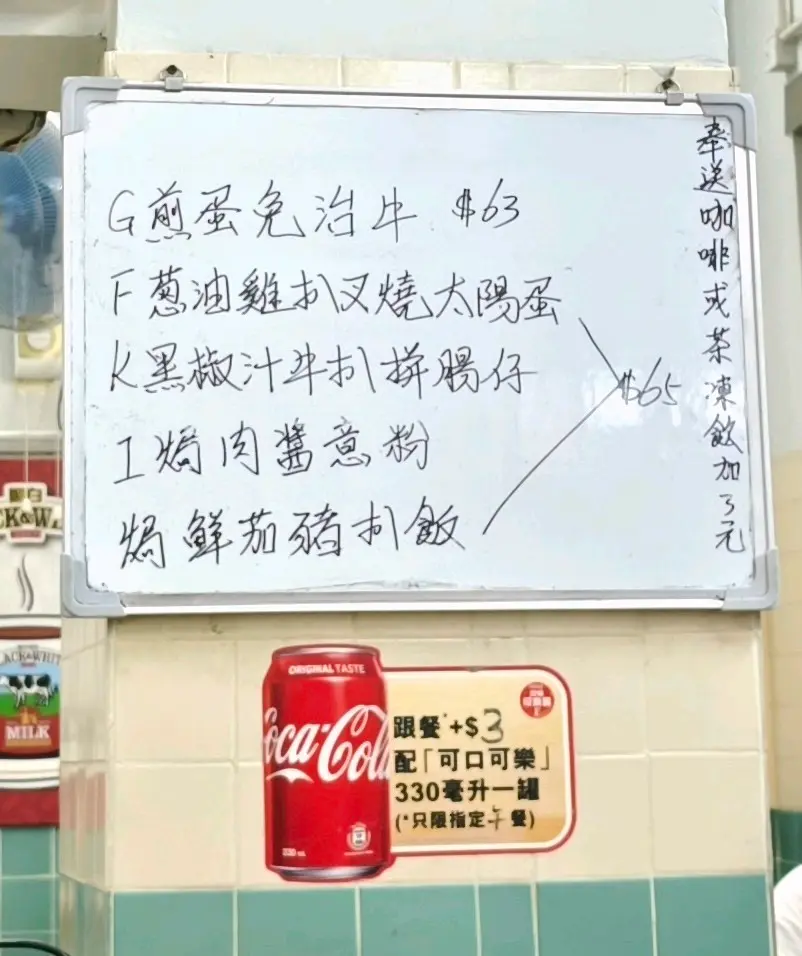 G煎蛋免治牛 $63
F葱油雞扒叉燒太陽蛋
K黑椒汁牛扒拼腸仔
I焗肉醬意粉
焗鮮茄豬扒飯
$65
奉送咖啡或茶凍飲加3元
ORIGINAL TASTE
Coca-Cola
跟餐*+$3
配「可口可樂」
330毫升一罐
(*只限指定午餐)
330 mL
CK&W
ACK&WHIT
MILK